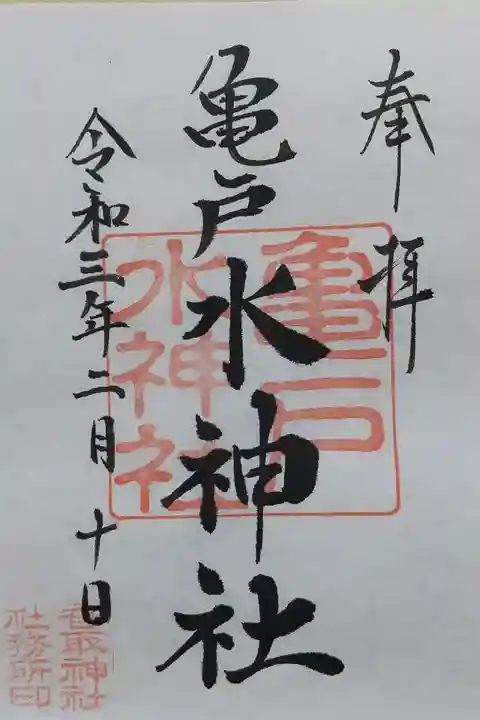 奉拝
亀戸水神社
令和三年二月十日
亀戸
水神社
香取神社
社務所印